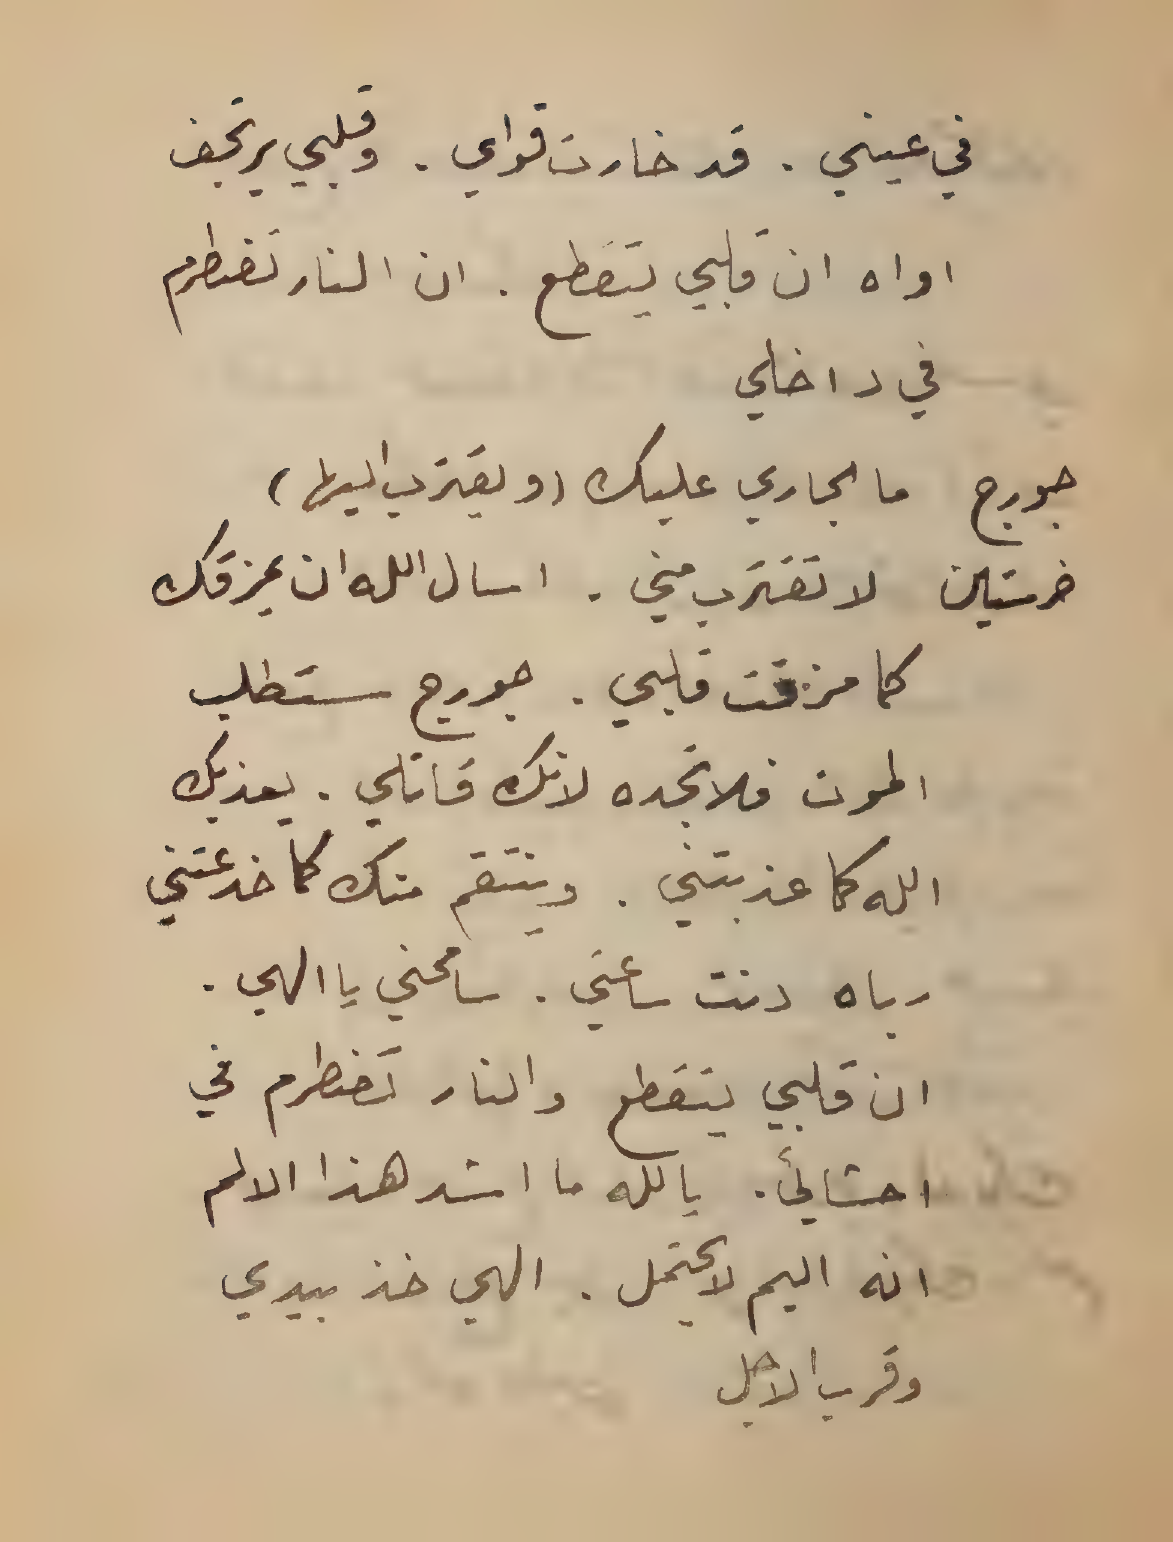 في عيني . قد خارت قواي . وقلبي يرتجف
اواه ان قلبي يتقطع . ان النار تضطرم
في داخلي
جورج ما الجاري عليك (ويقترب اليها)
خرستين لا تقترب مني . اسال الله ان يمزقك
كما مزقت قلبي . جورج ستطلب
الموت فلا تجده لانك قاتلي . يعذبك
الله كما عذبتني . وينتقم منك كما خدعتني
رباه دنت ساعتي . سامحني يا الهي .
ان قلبي يتقطع والنار تضطرم في
احشائي . يا لله ما اشد هذا الالم
انه اليم لا يحتمل . الهي خذ بيدي
وقرب الاجل